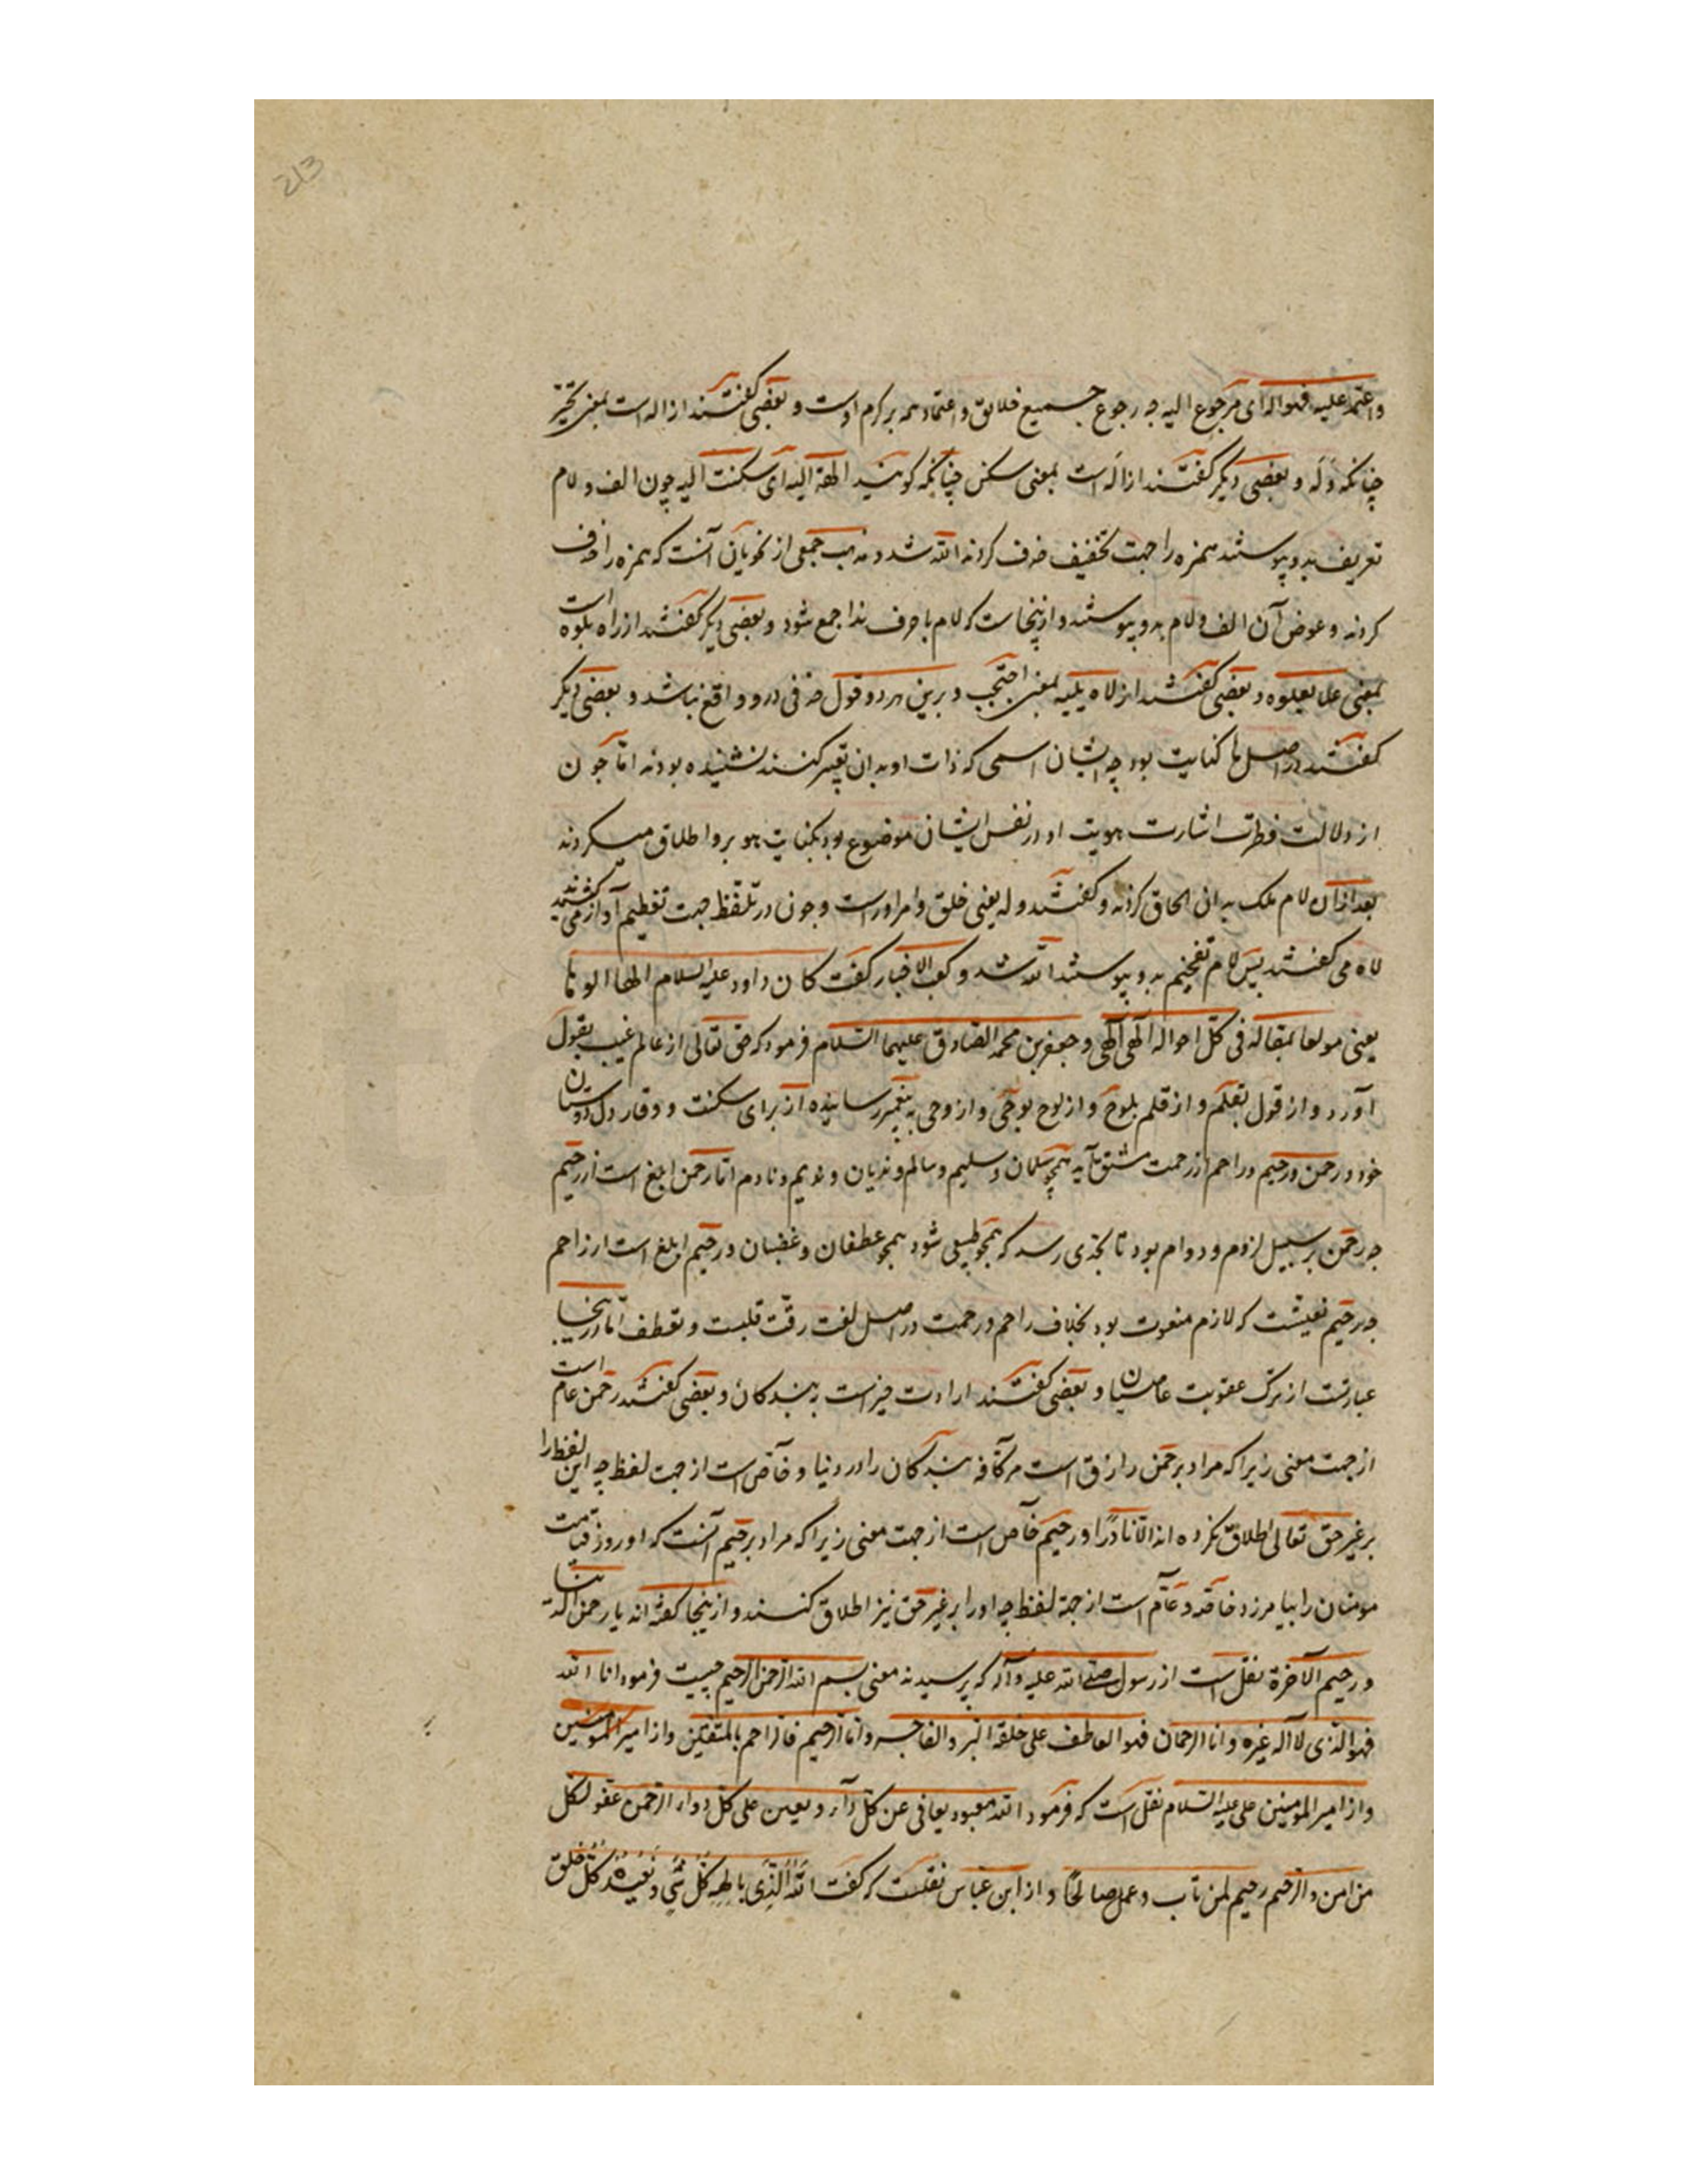 213
واعتمد علیه فهو اله ای مرجوع الیه چه رجوع جمیع خلایق و اعتماد همه بر کرم اوست و بعضی گفتند از اله است بمعنی تحیر
چنانکه وله و بعضی دیگر گفتند از اله است بمعنی سکن چنانکه گویند الهت الیه ای سکنت الیه چون الف و لام
تعریف بدو پیوستند همزه را جهت تخفیف حذف کردند الله شد و مذهب جمعی از نحویان آنست که همزه را حذف
کردند و عوض آن الف و لام بدو پیوستند و ازینجاست که لام با حرف ندا جمع شود و بعضی دیگر گفتند از لاه یلوه است
بمعنی علا یعلوه و بعضی گفتند از لاه یلیه بمعنی احتجب و برین هر دو قول حذفی درو واقع نباشد و بعضی دیگر
گفتند در اصل ها کنایت بود چه ایشان اسمی که ذات او بدان تعبیر کنند نشنیده بودند اما چون
از دلالت فطرت اشارت هویت او در نفس ایشان موضوع بود بکنایت هو برو اطلاق میکردند
بعد از آن لام ملک به ان الحاق کردند و گفتند وله یعنی خلق و امر اوراست و چون در تلفظ جهت تعظیم آواز می کشیدند
لاه می گفتند پس لام تفخیم بدو پیوستند الله شد و کعب الاخبار گفت کان داود علیه السلام الها الوها
یعنی مولعا بمقاله فی کل احواله الهی الهی و جعفر بن محمد الصادق علیهما السلام فرمود که حق تعالی از عالم غیب بقول
آورد و از قول بقلم و از قلم بلوح و از لوح بوحی و از وحی به پیغمبر رسانیده از برای سکنت و وقار دل دوستان
خود و رحمن و رحیم و راحم از رحمت مشتق آید همچو سلمان و سلیم و سالم و ندمان و ندیم و نادم اما رحمن ابلغ است از رحیم
چه رحمن بر سبیل لزوم و دوام بود تا بحدی رسد که همچو طبیعی شود همچو عطفان و غضبان و رحیم ابلغ است از راحم
چه رحیم نعتیست که لازم منعوت بود بخلاف راحم و رحمت در اصل لغت رقت قلبست و تعطف اما درینجا
عبارتست از ترک عقوبت عاصیان و بعضی گفتند ارادت خیر است به بندگان و بعضی گفتند رحمن عام است
از جهت معنی زیرا که مراد برحمن رازق است مر کافه بندگان را در دنیا و خاص است از جهت لفظ چه این لفظ را
بر غیر حق تعالی اطلاق نکرده اند الا نادرا و رحیم خاص است از جهت معنی زیرا که مراد برحیم آنست که او روز قیامت
مومنان را بیامرزد خاصة و عام است از جهة لفظ چه او را بر غیر حق نیز اطلاق کنند و ازینجا گفته اند یا رحمن الدنیا
و رحیم الآخرة نقل است از رسول صلی الله علیه و آله که پرسیدند معنی بسم الله الرحمن الرحیم چیست فرمود اما الله
فهو الذی لا اله غیره و اما الرحمان فهو العاطف علی خلقه البر و الفاجر و اما الرحیم فالراحم بالمتقین و از امیر المومنین
و از امیر المومنین علی علیه السلام نقل است که فرمود الله معبود یعافی عن کل داء و یعین علی کل دواء الرحمن عفو لکل
من امن و الرحیم رحیم لمن تاب و عمل صالحا و از ابن عباس نقلست که گفت الله الذی یا له کل شی و یعبده کل خلق